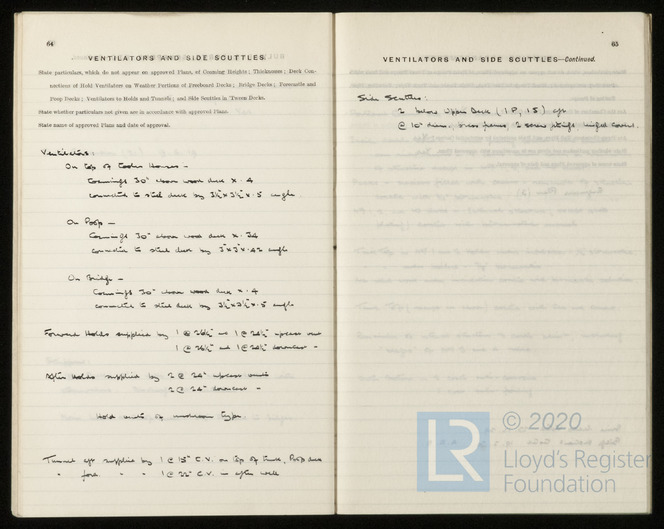 64
VENTILATORS AND SIDE SCUTTLES.
State particulars, which do not appear on approved Plans, of Coaming Heights; Thicknesses; Deck Con-
nections of Hold Ventilators on Weather Portions of Freeboard Decks; Bridge Decks; Forecastle and
Poop Decks; Ventilators to Holds and Tunnels; and Side Scuttles in 'Tween Decks.
State whether particulars not given are in accordance with approved Plans.
State name of approved Plans and date of approval.
Ventilators
On top of Houses —
Coamings 30" above wood deck x .4
connected to steel deck by 3½" x 3½" x .5 angle
On Poop —
Coamings 30" above wood deck x .34
connected to steel deck by 3" x 3" x .42 angle
On Bridge —
Coamings 30" above wood deck x .4
connected to steel deck by 3½" x 3½" x .5 angle
Forward Holds supplied by 1 @ 26½" and 1 @ 24½" upcast vent
1 @ 26½" and 1 @ 24½" downcast -
After Holds supplied by 2 @ 24" upcast vents
2 @ 24" downcast -
Hold vents of mushroom type
Tunnel aft supplied by 1 @ 15" C.V. on top of trunk, Poop deck
" fore " " 1 @ 22" C.V. — after well
65
VENTILATORS AND SIDE SCUTTLES—Continued.
Side Scuttles:
2 below Upper Deck (1 P, 1 S) aft
@ 10" diam, brass frames, 2 hinged covers.
© 2020
LR
Lloyd's Register
Foundation